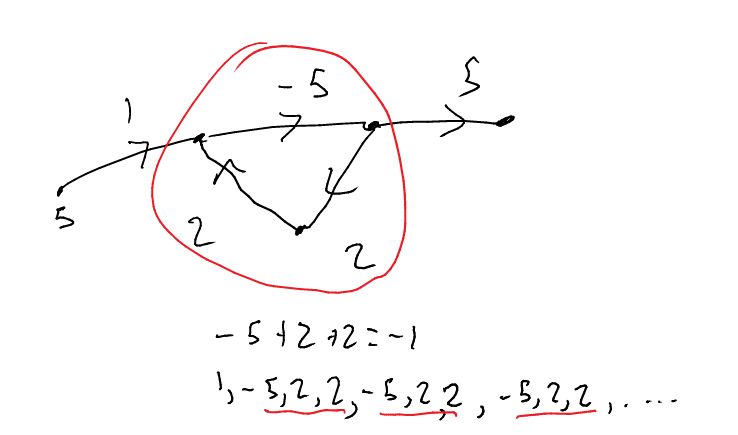 1
-5
5
5
2
2
-5+2+2=-1
1,-5,2,2,-5,2,2,-5,2,2,.....